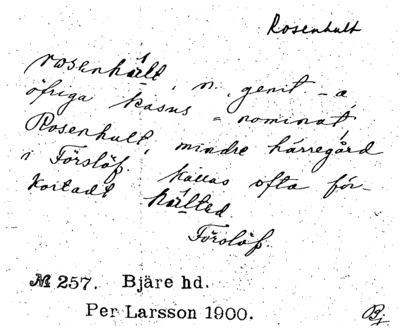 Rosenhult
rosenhùlt, n. genit -a,
öfriga kasus = nominat,
Rosenhult, mindre härregård
i Förslöf. Kallas ofta för-
kortadt hùlted
Förslöf.
№ 257. Bjäre hd.
Per Larsson 1900.
Bj